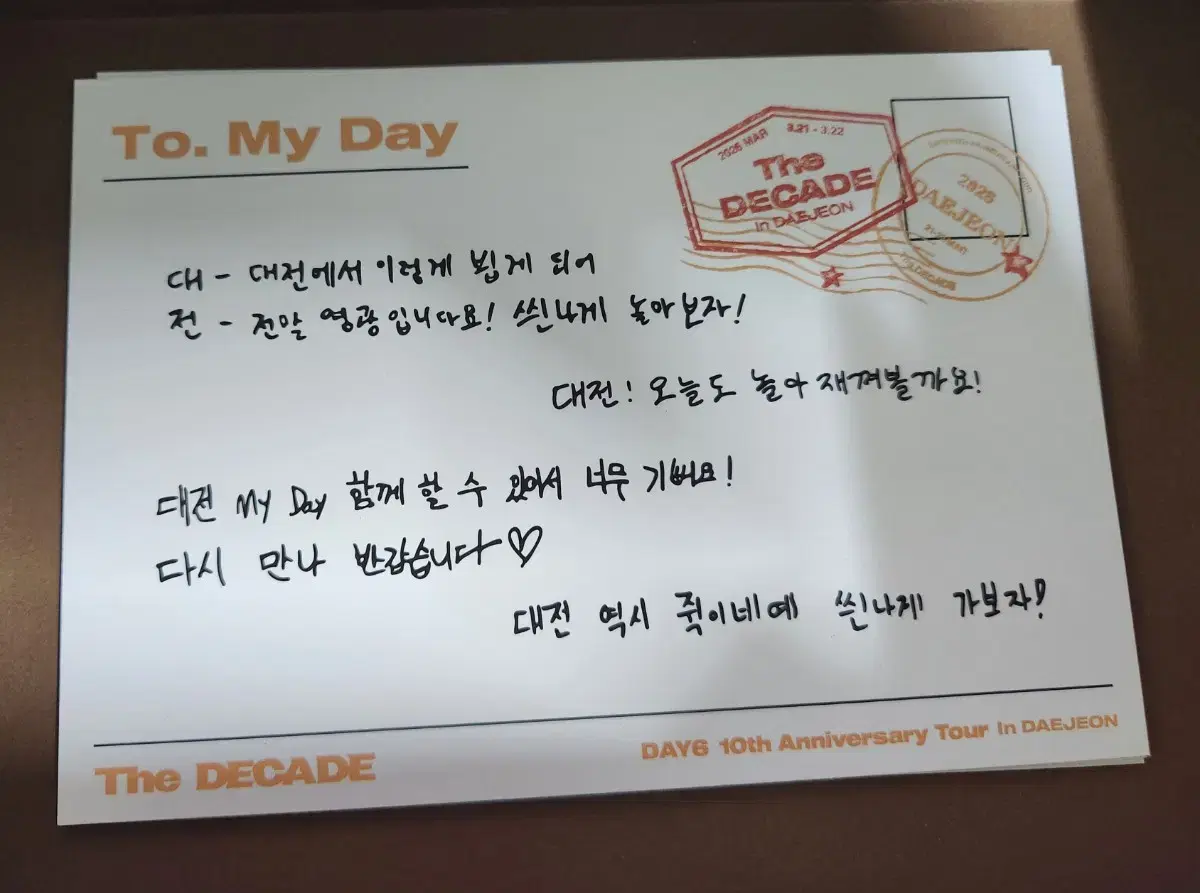 To. My Day
2026 MAR 3.21 - 3.22
The
DECADE
in DAEJEON
2026
DAEJEON
대 - 대전에서 이렇게 뵙게 되어
전 - 전말 영광입니다요! 씐나게 놀아보자!
대전! 오늘도 놀아재껴볼까요!
대전 My Day 함께 할 수 있어서 너무 기뻐요!
다시 만나 반갑습니다♡
대전 역시 쥑이네예 씐나게 가보자!
The DECADE
DAY6 10th Anniversary Tour In DAEJEON